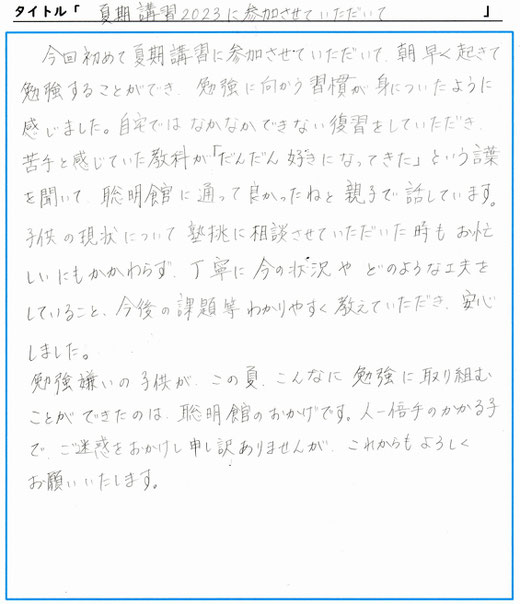 タイトル「 夏期講習2023に参加させていただいて 」
今回初めて夏期講習に参加させていただいて、朝早く起きて
勉強することができ、勉強に向かう習慣が身についたように
感じました。自宅ではなかなかできない復習をしていただき、
苦手と感じていた教科が「だんだん好きになってきた」という言葉
を聞いて、聡明館に通って良かったねと親子で話しています。
子供の現状について塾桃に相談させていただいた時もお忙
しいにもかかわらず、丁寧に今の状況やどのような工夫を
していること、今後の課題等わかりやすく教えていただき、安心
しました。
勉強嫌いの子供が、この夏、こんなに勉強に取り組む
ことができたのは、聡明館のおかげです。人一倍手のかかる子
で、ご迷惑をおかけし申し訳ありませんが、これからもよろしく
お願いいたします。